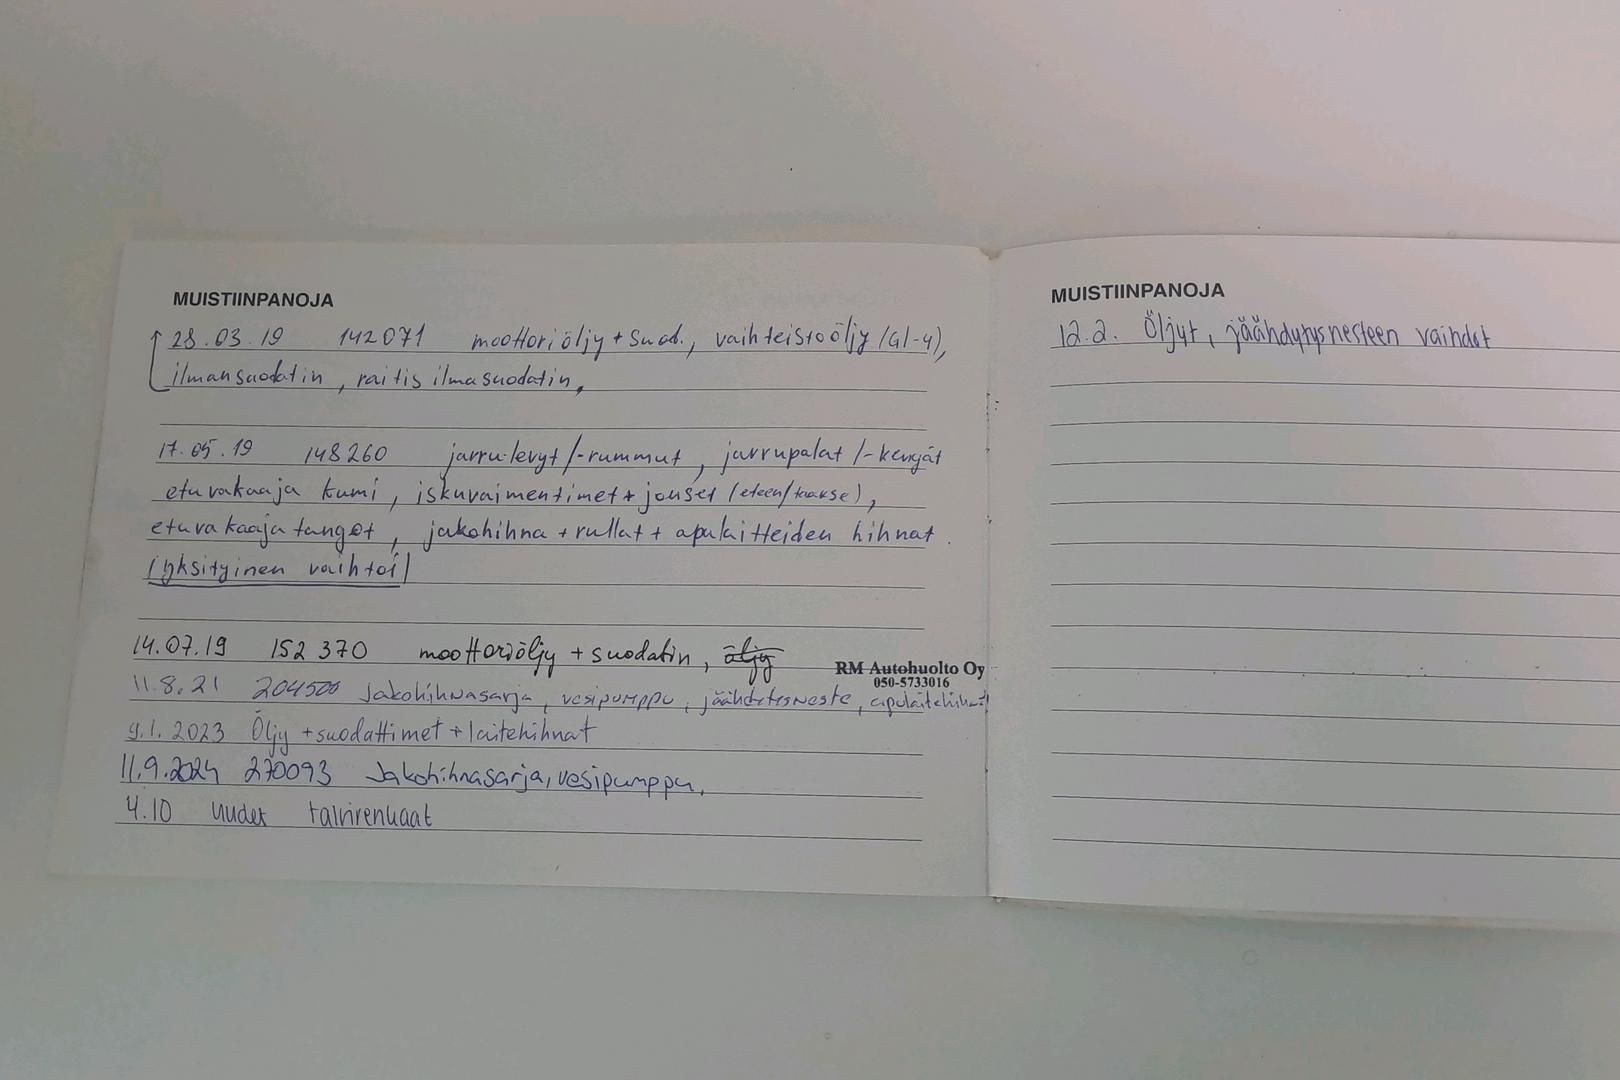 MUISTIINPANOJA
28.03.19 142071 moottoriöljy + suod., vaihteistoöljy (Gl-4),
ilmansuodatin, raitis ilmasuodatin,
17.05.19 148260 jarru-levyt/-rummut, jarrupalat/-kengät
etuvakaaja kumi, iskuvaimentimet + jouset (eteen/taakse),
etuvakaaja tangot, jakohihna + rullat + apulaitteiden hihnat.
(yksityinen vaihtoi)
14.07.19 152 370 moottoriöljy + suodatin, öljy
RM Autohuolto Oy
050-5733016
11.8.21 204500 Jakohihnasarja, vesipumppu, jäähdytysneste, apulaitehihnat
9.1.2023 Öljy + suodattimet + laitehihnat
11.9.2024 270093 Jakohihnasarja, vesipumppu,
4.10 Uudet talvirenkaat
MUISTIINPANOJA
12.2. Öljyt, jäähdytysnesteen vaihdot